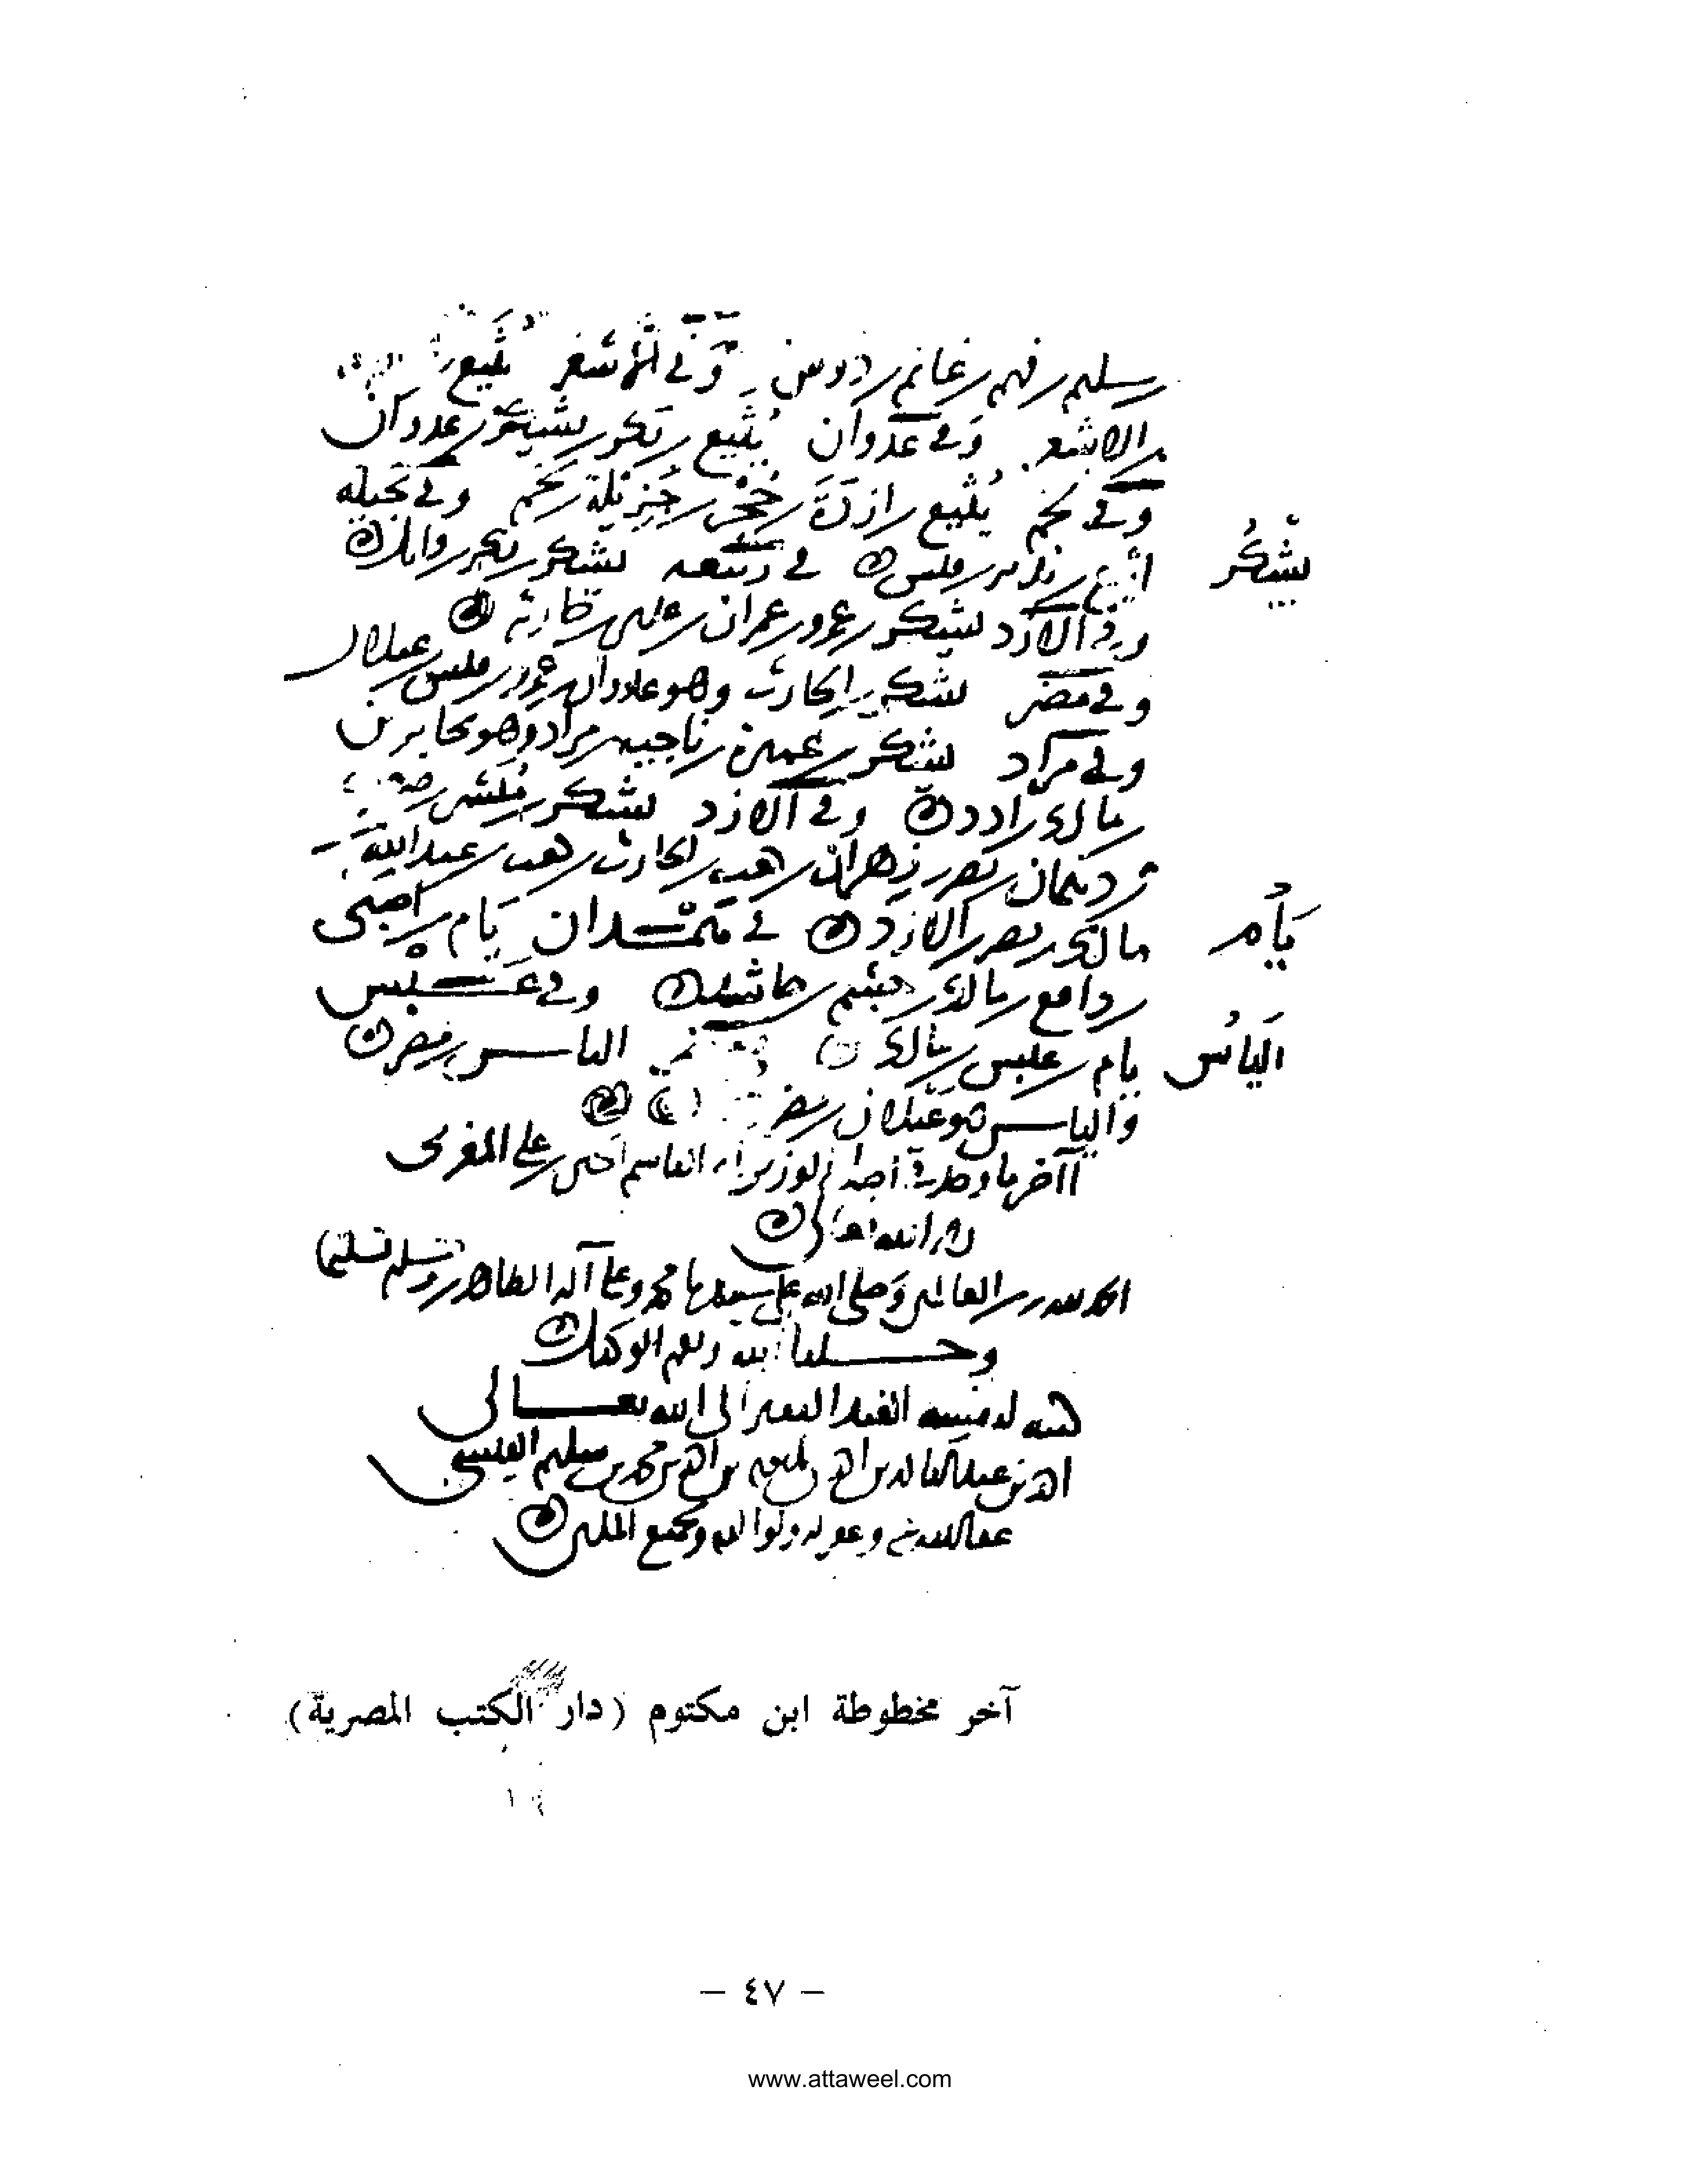 بن سليم بن فهم بن غانم بن دوس وفي الأشعر يُثَيع بن
الاشعر وفي عدوان يُثَيع بن بكر بن يشكر بن عدوان
وفي لخم يُثَيع بن ازدة بن حجر بن جزيلة بن لخم وفي بجيله
يَشْكُر
أُثيع بن نذير بن في ربيعه يشكر بن بكر بن وايل
وفي الازد يشكر بن عمرو بن عمران بن عدي بن حارثه
وفي مضر يشكر بن الحارث وهو عدوان بن عمرو بن قيس عيلان
وفي مراد يشكر بن عميرة بن ناجيه بن مراد وهو يحابر بن
مالك بن ادد وفي الازد يشكر بن مبشر بن
بن دهمان بن نصر بن زهران بن كعب بن الحارث بن كعب بن عبد الله بن
يَام
مالك بن نصر بن الازد في همدان يَام بن اصبى
بن دافع بن مالك بن جشم بن حاشد وفي عنس
اليَاسُ
يام بن عنس بن مالك الياس بن مضر
والياس هو عيلان بن مضر
آخر ما وجد في اصل الوزير ابي القاسم الحسين بن علي المغربى
رحمه الله تعالى
الحمد لله رب العالمين وصلى الله على سيدنا محمد وعلى آله الطاهرين وسلم تسليما
وحسبنا الله ونعم الوكيل
كتبه لنفسه العبد الفقير الى الله تعالى
احمد بن عبد القادر بن احمد بن مكتوم بن احمد بن محمد بن سليم القيسي
عفا الله عنه وغفر له ولوالديه ولجميع المسلمين
آخر مخطوطة ابن مكتوم (دار الكتب المصرية)
– ٤٧ –
www.attaweel.com